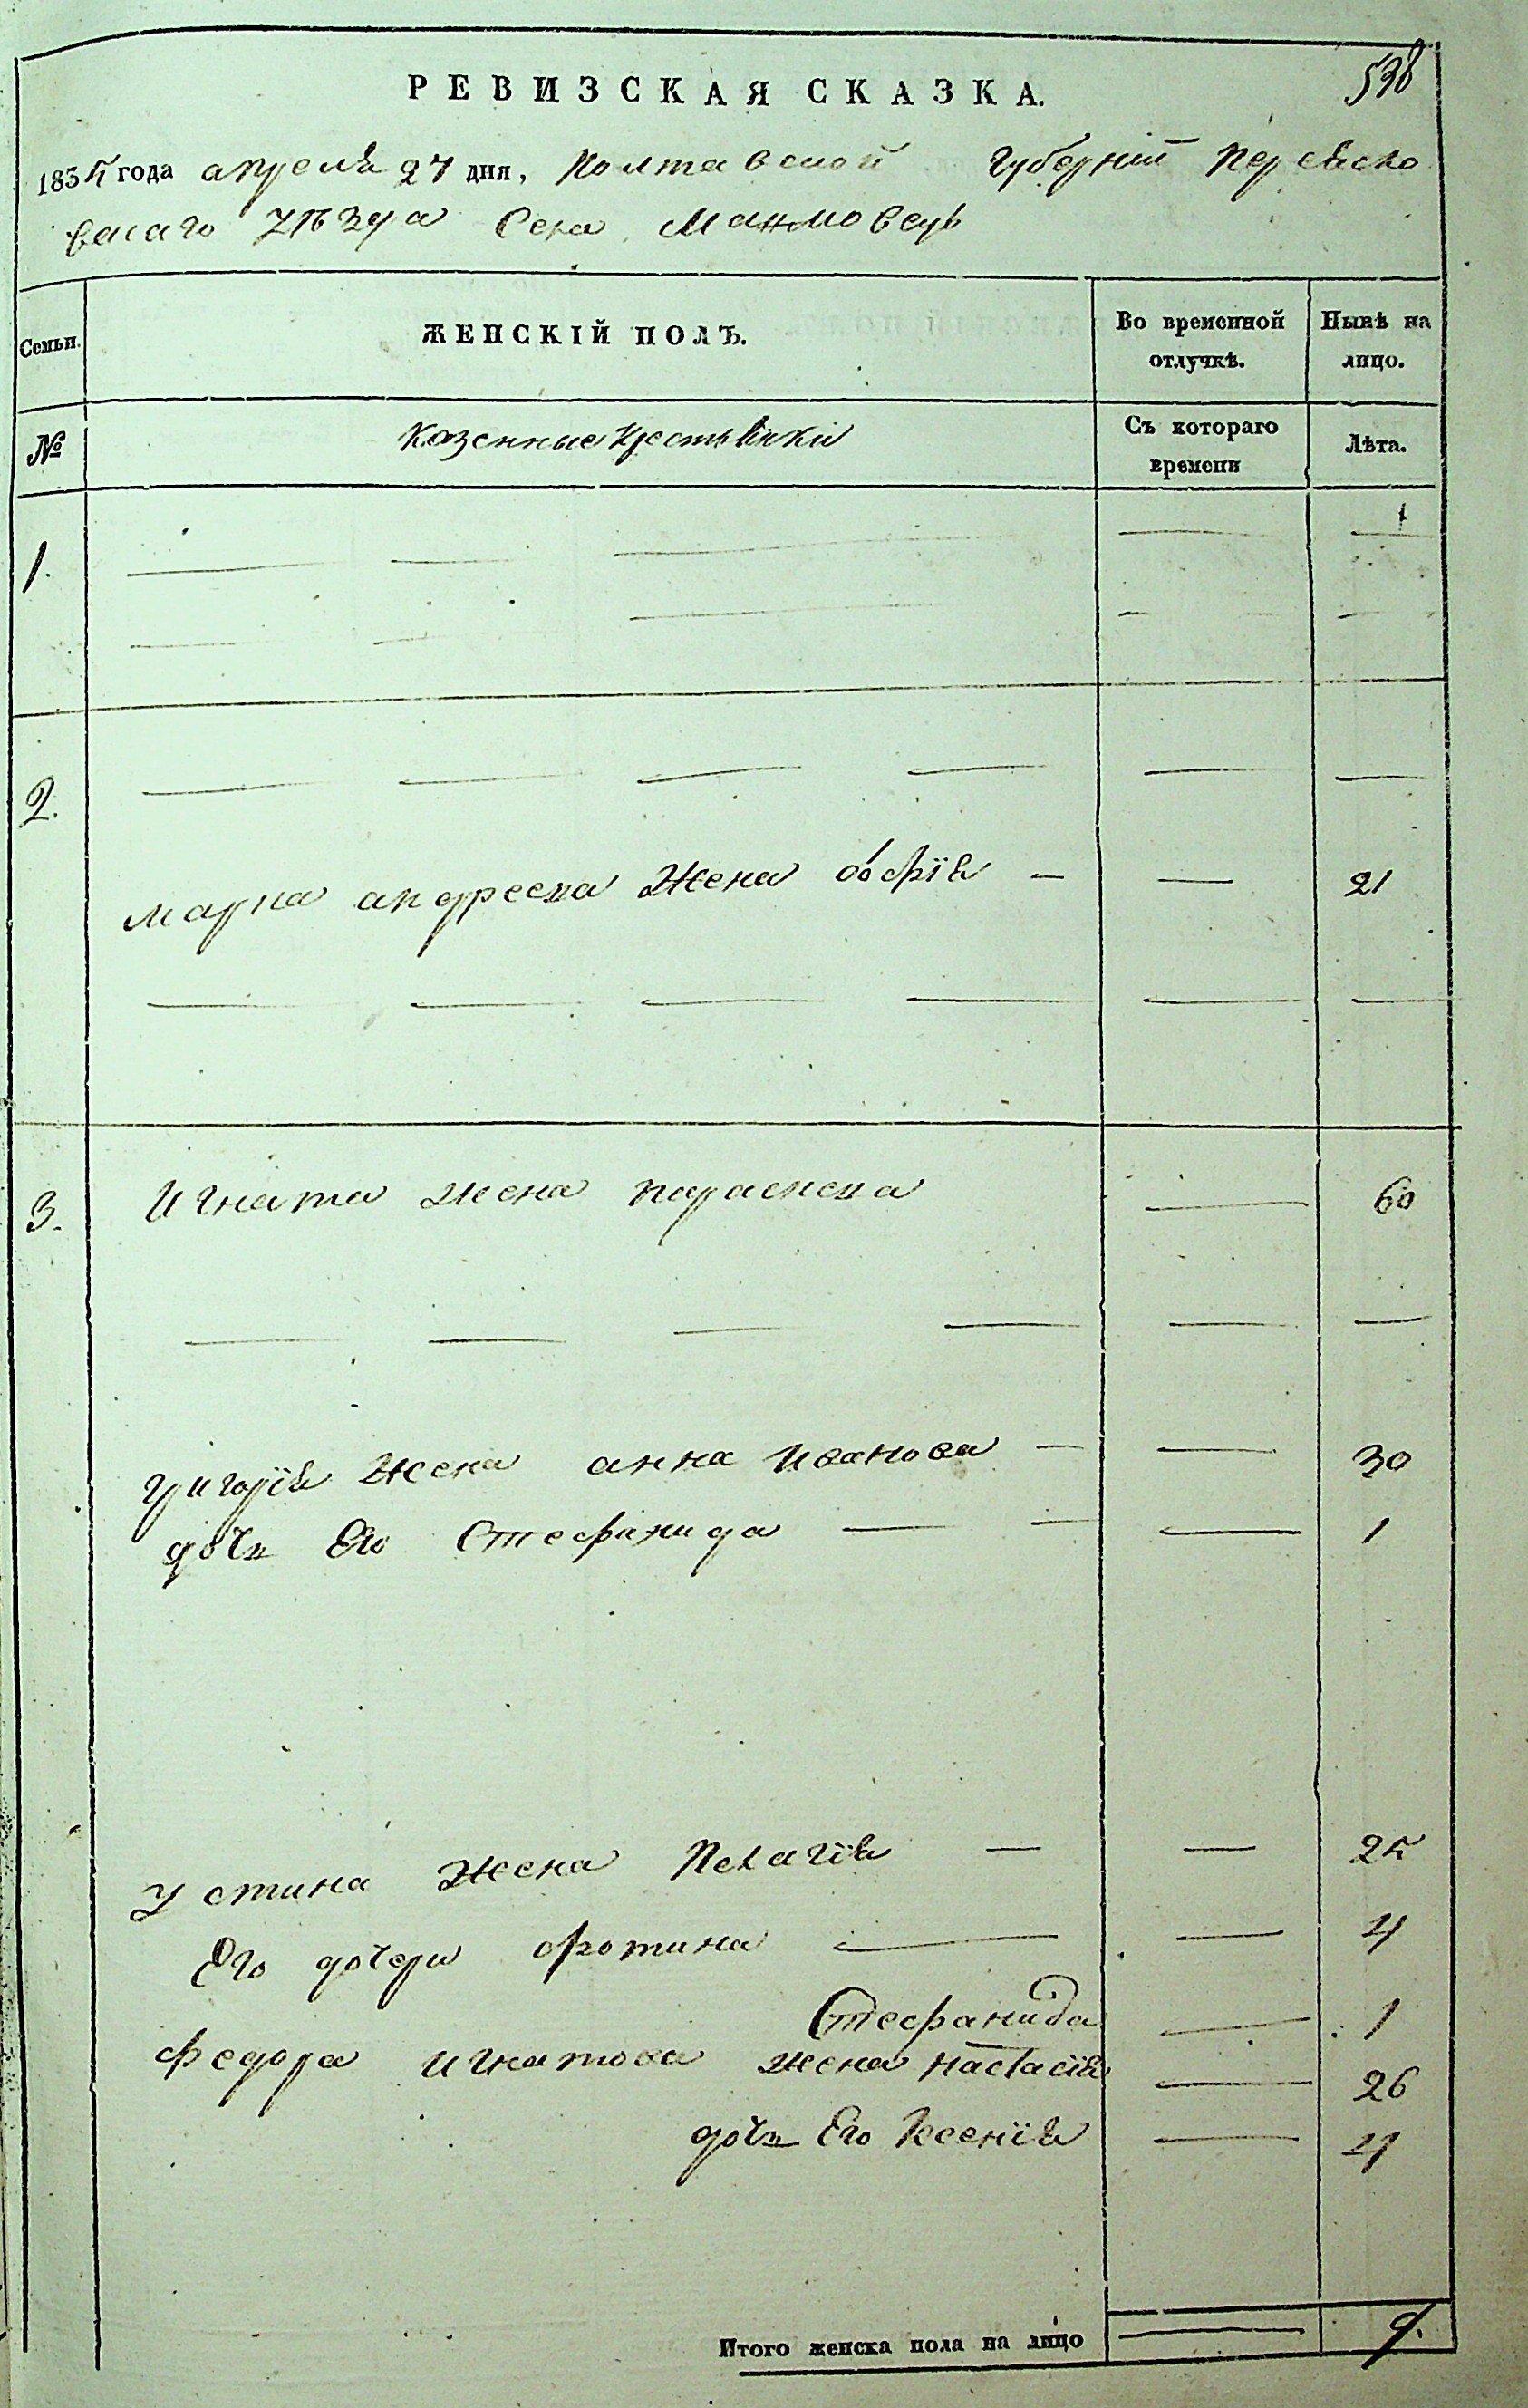 538
РЕВИЗСКАЯ СКАЗКА.
1854 года апреля 27 дня, Полтавской Губерніи Переясло
вскаго уѣзда Села
Семьи.
ЖЕНСКІЙ ПОЛЪ.
Во временной отлучкѣ.
Нынѣ на лицо.
№
Казенные крестьянки
Съ котораго времени
Лѣта.
1.
2.
андреева жена софія — — 21
3. Игната жена параскева — 60
григорія жена анна иванова — — 30
дочь Его Стефанида — — — 1
Устина жена Пелагія — — 25
Его дочери фотина — — 4
Стефанида — 1
федора игнатова жена настасія — 26
дочь Его Ксенія — 4
Итого женска пола на лицо — 9.